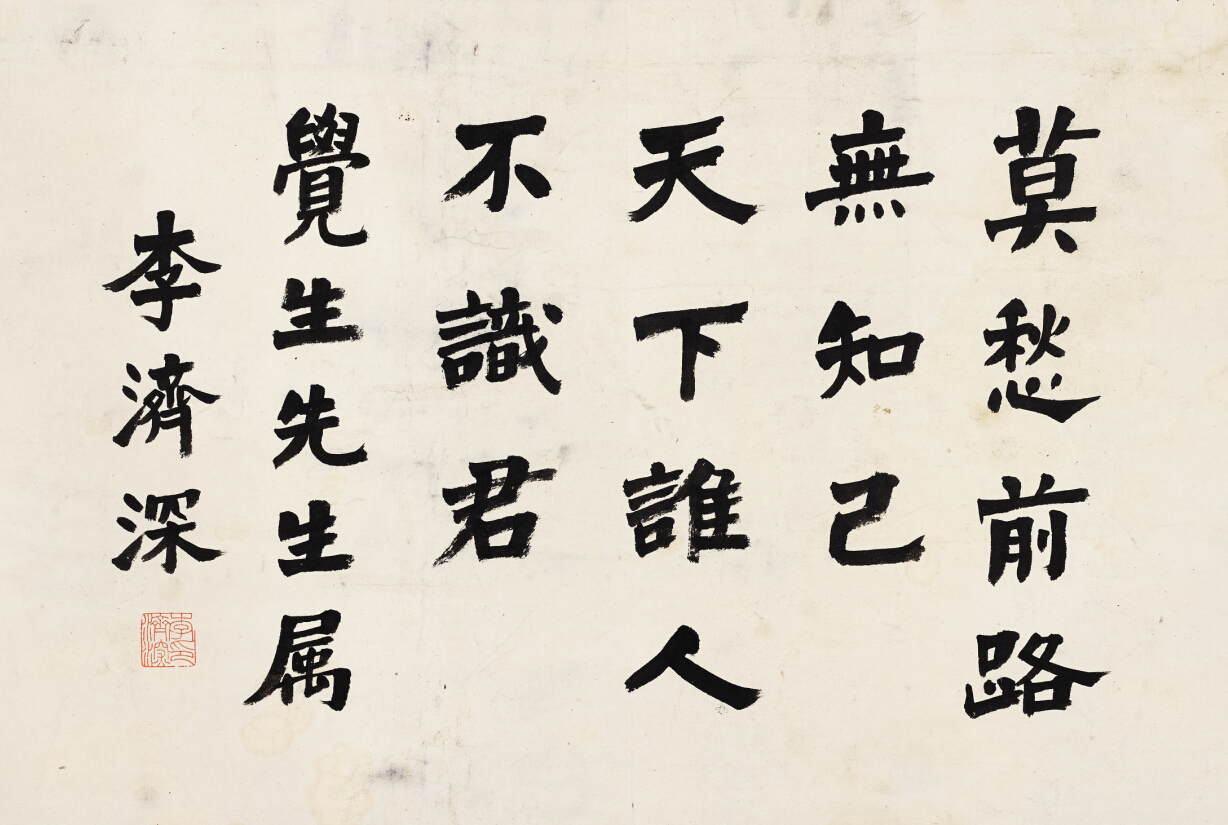 莫愁前路
無知己
天下誰人
不識君
覺生先生属
李濟深